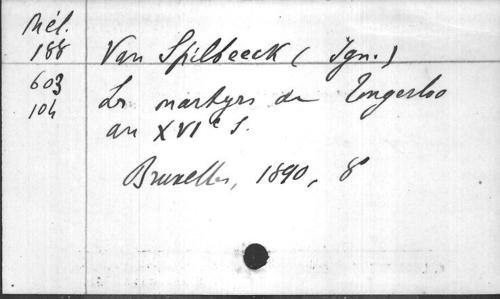 Mél.
188
603
104
Van Spilbeeck (Ign.)
Les martyrs de Tongerloo
au XVIe S.
Bruxelles, 1890, 8°